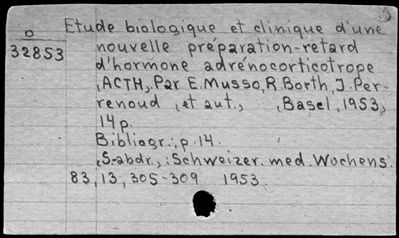 Etude biologique et clinique d'une
O
32853
nouvelle préparation-retard
d'hormone adrénocorticotrope
,ACTH,. Par E. Musso, R. Borth, J. Per-
renoud ,et aut., ,Basel, 1953,
14 p.
Bibliogr.: p. 14.
,S.-abdr., : Schweizer. med. Wochens.
83, 13, 305-309 1953.